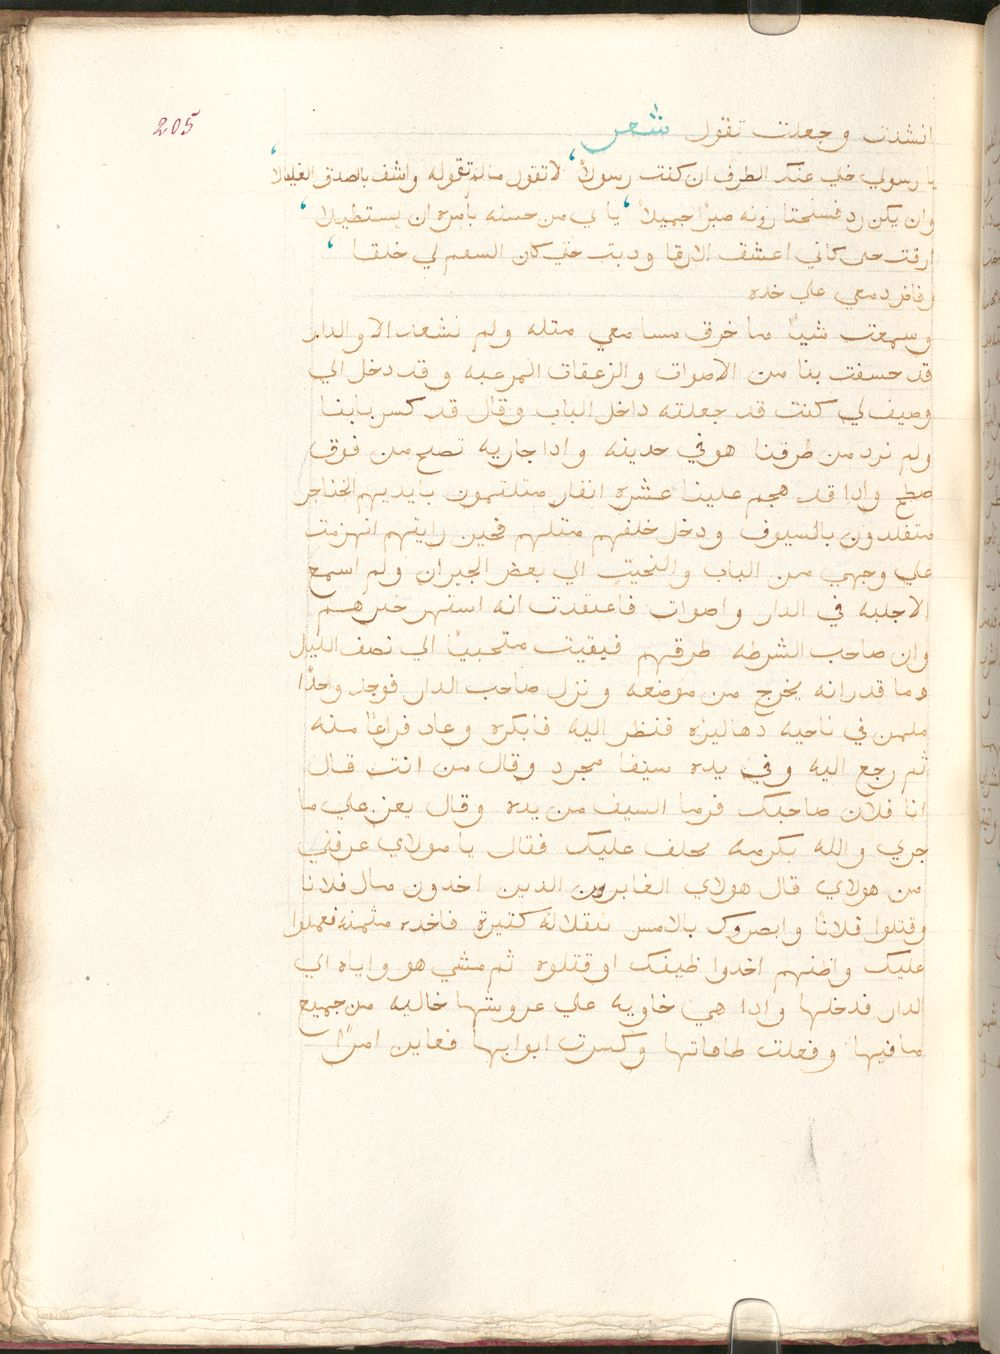 205
انشدت وجعلت تقول شعر
يا رسولي خلي عنك الطرف ان كنت رسولاً لا تقول مالم تقوله واشف بالصدق الغليلا
وان يكن رد فسنحتا زونه صبرًا جميلاً يا لي من حسنه يامره ان يستطيلا
ارقت حتى كاني اعشق الارقا ودبت حتي كان السقم لي خلقا
وفافر دمعي علي خده
وسمعت شياً ما خرق مسامعي مثله ولم نشعر الا والدار
قد خسفت بنا من الاصوات والزعقات المرعبه وقد دخل الي
وصيف لي كنت قد جعلته داخل الباب وقال قد كسر بابنا
ولم نرد من طرقنا هو في حديثه واذا جاريه تصيح من فوق
صطح واذا قد هجم علينا عشره انفار متلثمون بايديهم الخناجر
متقلدون بالسيوف ودخل خلفهم مثلهم فحين رايتهم انهزمت
علي وجهي من الباب والتجيت الي بعض الجيران ولم اسمع
الا جلبه في الدار واصوات فاعتقدت انه استهر خبرهم
وان صاحب الشرطه طرقهم فبقيت متخبياً الي نصف الليل
وما قدر انه يخرج من موضعه ونزل صاحب الدار فوجد واحدًا
ملمن في ناحيه دهاليزه فنظر اليه فانكره وعاد فراعاً منه
ثم رجع اليه وفي يده سيفا مجرد وقال من انت قال
انا فلان صاحبك فرما السيف من يده وقال يعز علي ما
جري والله بكرمه يخلف عليك فقال يا مولاي عرفني
من هولاي قال هولاي الغابرون الدين اخدون مال فلانا
وقتلوا فلاناً وابصروك بالامس تنقلاله كثيرة فاخده مثمنه فعملوا
عليك واظنهم اخدوا ظيفك او قتلوه ثم مشي هو واياه الي
الدار فدخلها وادا هي خاويه علي عروشها خاليه من جميع
ما فيها وفعلت طاقاتها وكسرت ابوابها فعاين امرًا